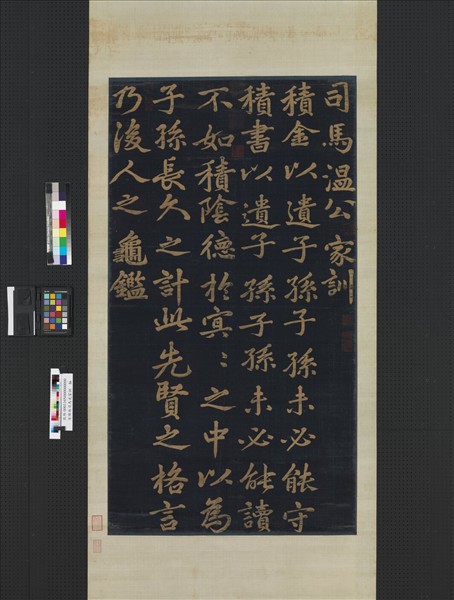 司馬温公家訓
積金以遺子孫子孫未必能守
積書以遺子孫子孫未必能讀
不如積陰德於冥〻之中以為
子孫長久之計此先賢之格言
乃後人之龜鑑